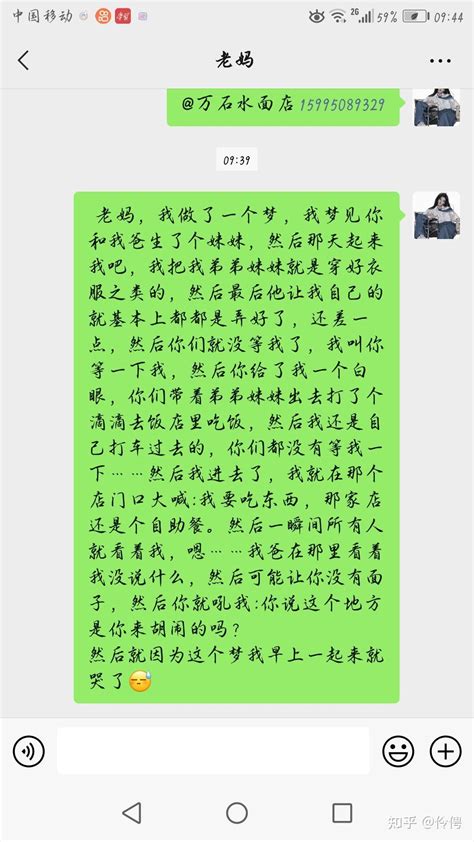 中国移动 2G 59% 09:44
老妈
@万石水面店 15995089329
09:39
老妈，我做了一个梦，我梦见你
和我爸生了个妹妹，然后那天起来
我吧，我把我弟弟妹妹就是穿好衣
服之类的，然后最后他让我自己的
就基本上都都是弄好了，还差一
点，然后你们就没等我了，我叫你
等一下我，然后你给了我一个白
眼，你们带着弟弟妹妹出去打了个
滴滴去饭店里吃饭，然后我还是自
己打车过去的，你们都没有等我一
下……然后我进去了，我就在那个
店门口大喊:我要吃东西，那家店
还是个自助餐。然后一瞬间所有人
就看着我，嗯……我爸在那里看着
我没说什么，然后可能让你没有面
子，然后你就吼我:你说这个地方
是你来胡闹的吗？
然后就因为这个梦我早上一起来就
哭了😓
知乎 @伶俜